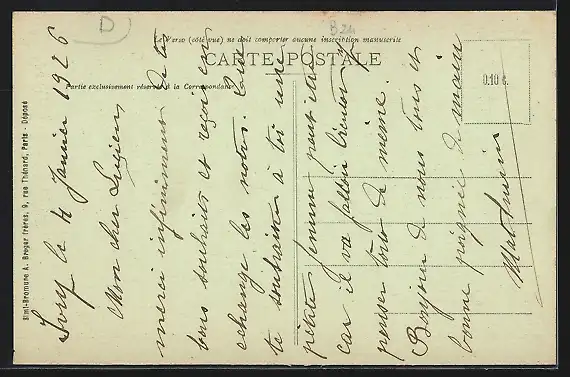 D
B 24
Le Verso (côté vue) ne doit comporter aucune inscription manuscrite
CARTE POSTALE
Partie exclusivement réservée à la Correspondance
0.10 c.
Simi-Bromure A. Breger frères, 9, rue Thénard, Paris - Déposé
Ivry le 4 Janvier 1926
Mon cher Lucien,
merci infiniment de tes
bons souhaits et reçois en
échange les notres. Que
te souhaiter à toi une
petite femme peut être
car il va falloir bientot y
penser tout de même.
Bonjour de nous tous et
bonne poignée de main